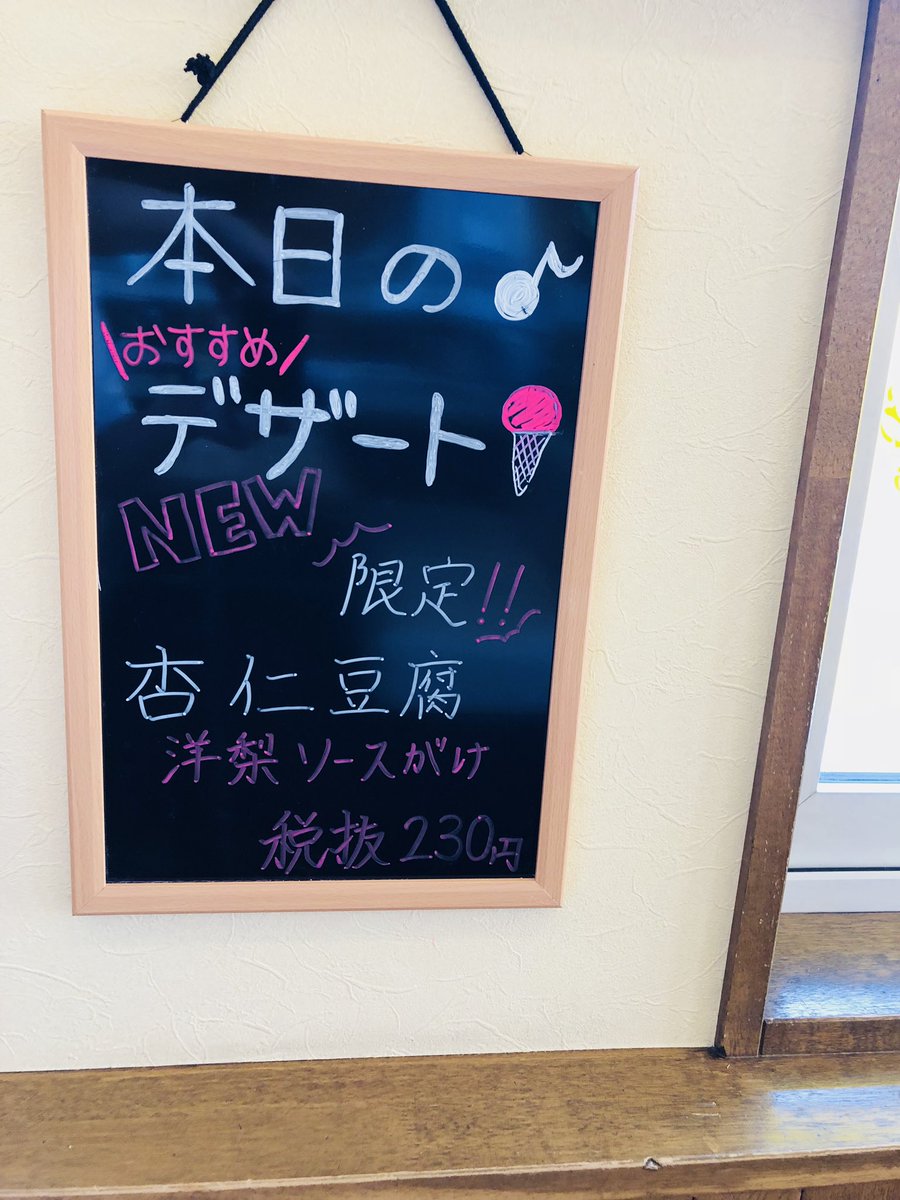 本日の♪
\おすすめ/
デザート
NEW
限定!!
杏仁豆腐
洋梨ソースがけ
税抜230円